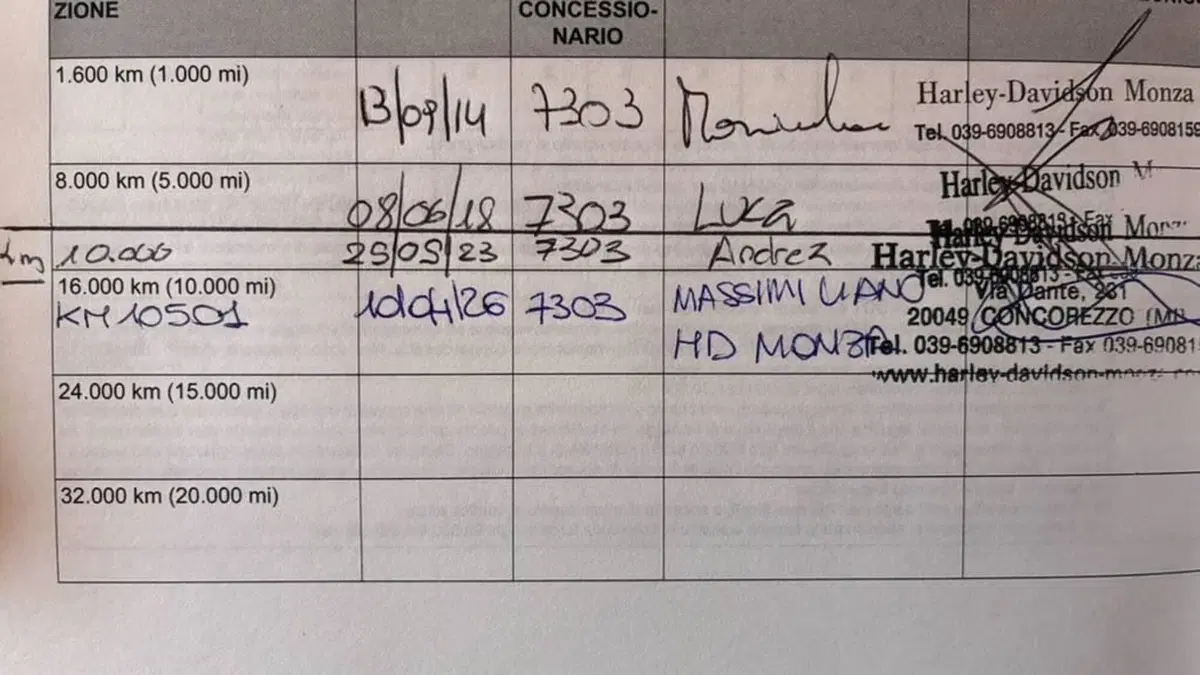 ZIONE
CONCESSIO-
NARIO
1.600 km (1.000 mi)
13/09/14 7303
Harley-Davidson Monza
Tel. 039-6908813 - Fax 039-6908159
8.000 km (5.000 mi)
08/06/18 7303 Luca
Harley-Davidson M
039-6908813 - Fax
Harley-Davidson Monz
km 10.000 25/05/23 7303 Andrea
Harley-Davidson Monza
Tel. 039-6908813 - Fax
16.000 km (10.000 mi)
KM 10501 10/04/26 7303 MASSIMILIANO
HD MONZA
Via Dante, 231
20049 CONCOREZZO (MI
Tel. 039-6908813 - Fax 039-69081
www.harley-davidson-monza.com
24.000 km (15.000 mi)
32.000 km (20.000 mi)